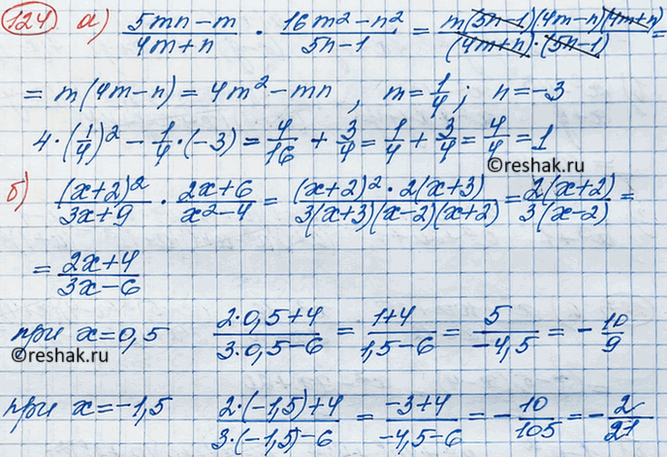 124 а) (5mn-m)/(4m+n) · (16m²-n²)/(5n-1) = (m(5n-1)(4m-n)(4m+n))/((4m+n)·(5n-1)) =
= m(4m-n) = 4m²-mn, m=1/4; n=-3
4·(1/4)² - 1/4·(-3) = 4/16 + 3/4 = 1/4 + 3/4 = 4/4 = 1
©reshak.ru
б) (x+2)²/(3x+9) · (2x+6)/(x²-4) = ((x+2)²·2(x+3))/(3(x+3)(x-2)(x+2)) = 2(x+2)/3(x-2) =
= (2x+4)/(3x-6)
при x=0,5 (2·0,5+4)/(3·0,5-6) = (1+4)/(1,5-6) = 5/(-4,5) = -10/9
©reshak.ru
при x=-1,5 (2·(-1,5)+4)/(3·(-1,5)-6) = (-3+4)/(-4,5-6) = -10/105 = -2/21
©reshak.ru